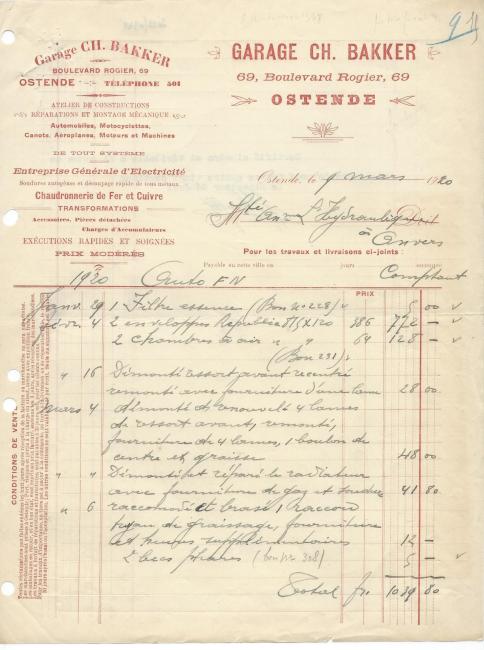 Garage CH. BAKKER
BOULEVARD ROGIER, 69
OSTENDE TÉLÉPHONE 501
ATELIER DE CONSTRUCTIONS
RÉPARATIONS ET MONTAGE MÉCANIQUE
Automobiles, Motocyclettes,
Canots, Aéroplanes, Moteurs et Machines
DE TOUT SYSTÈME
Entreprise Générale d'Electricité
Soudures autogènes et découpage rapide de tous métaux
Chaudronnerie de Fer et Cuivre
TRANSFORMATIONS
Accessoires, Pièces détachées
Charges d'Accumulateurs
EXÉCUTIONS RAPIDES ET SOIGNÉES
PRIX MODÉRÉS
GARAGE CH. BAKKER
69, Boulevard Rogier, 69
OSTENDE
Ostende, le 9 mars 1920
Sté Anve L'Hydraulique Doit
à Anvers
Pour les travaux et livraisons ci-joints :
Payable en cette ville en jours Comptant
1920 Auto FN
PRIX
Janv. 29 1 Filtre essence (Bon no 228) 5 00
Févr. 4 2 enveloppes Republic 815x120 386 772 —
2 chambres à air " " 64 128 —
(Bon 231)
" 16 Démonté ressort avant recentré
remonté avec fourniture d'une lame 28 00
Mars 4 démonté renouvelé 4 lames
de ressort avant, remonté,
fourniture de 4 lames, 1 boulon de
centre et graisse 48 00
" " Démonté et réparé le radiateur
avec fourniture de gaz et soudure 41 80
" 6 raccommodé et brasé 1 raccord
tuyau de graissage, fourniture
et heures supplémentaires 12 —
2 becs phares (bon no 308) 5 —
Total fr. 1039 80
CONDITIONS DE VENTE